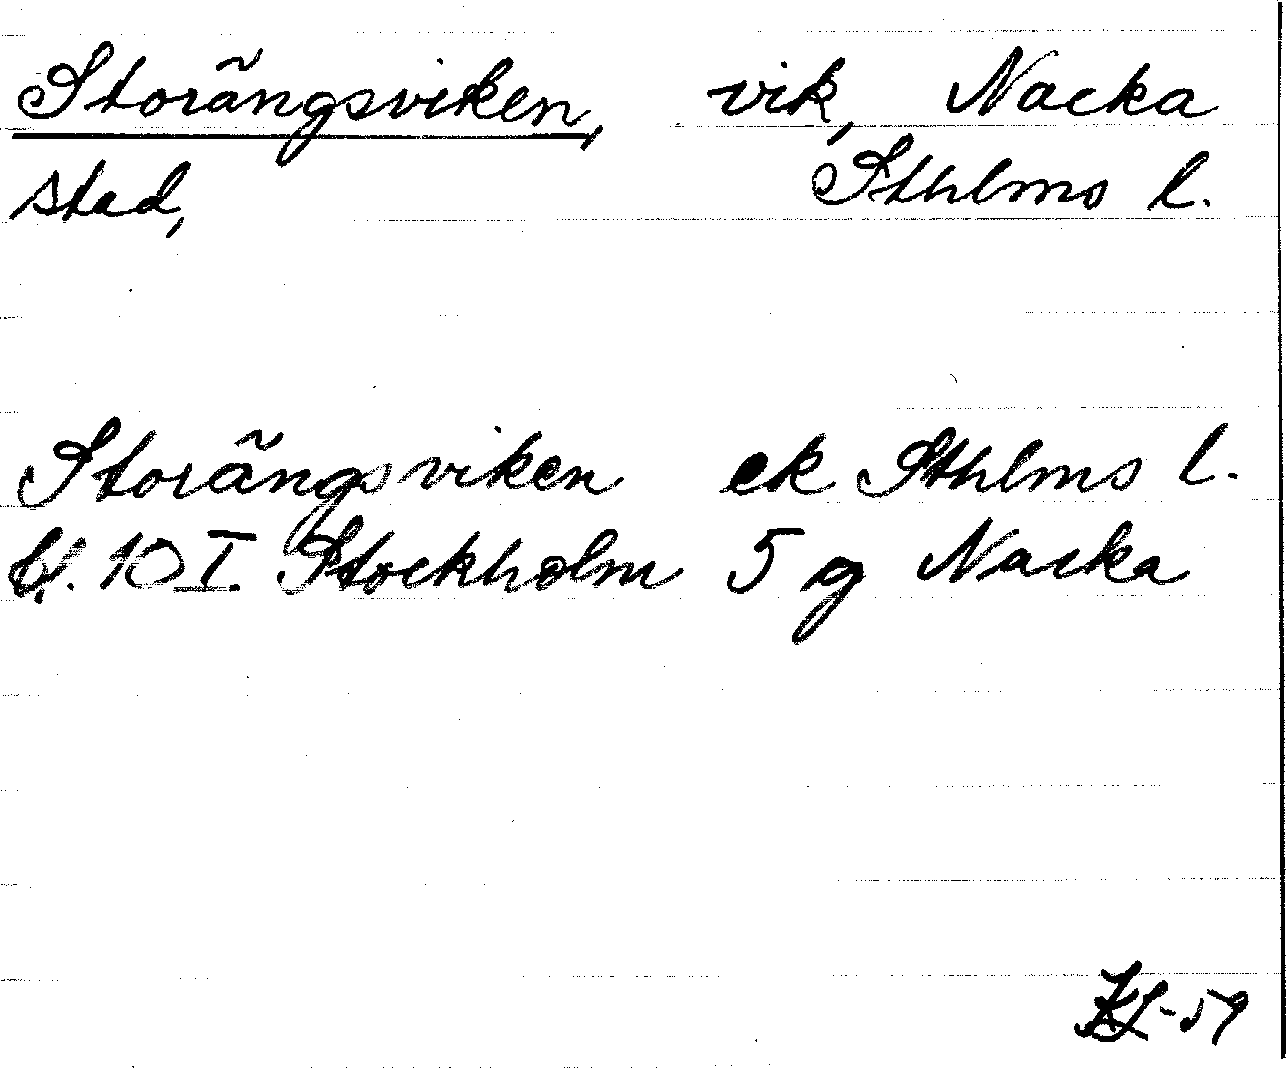 Storängsviken, vik, Nacka
stad, Sthlms l.
Storängsviken ek Sthlms l.
bl. 10 I. Stockholm 5 g Nacka
-59